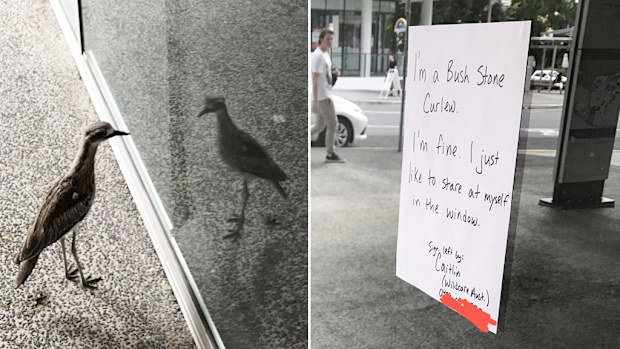 I'm a Bush Stone
Curlew.
I'm fine. I just
like to stare at myself
in the window.
Sign left by:
Caitlin
(Wildcare Aust.)